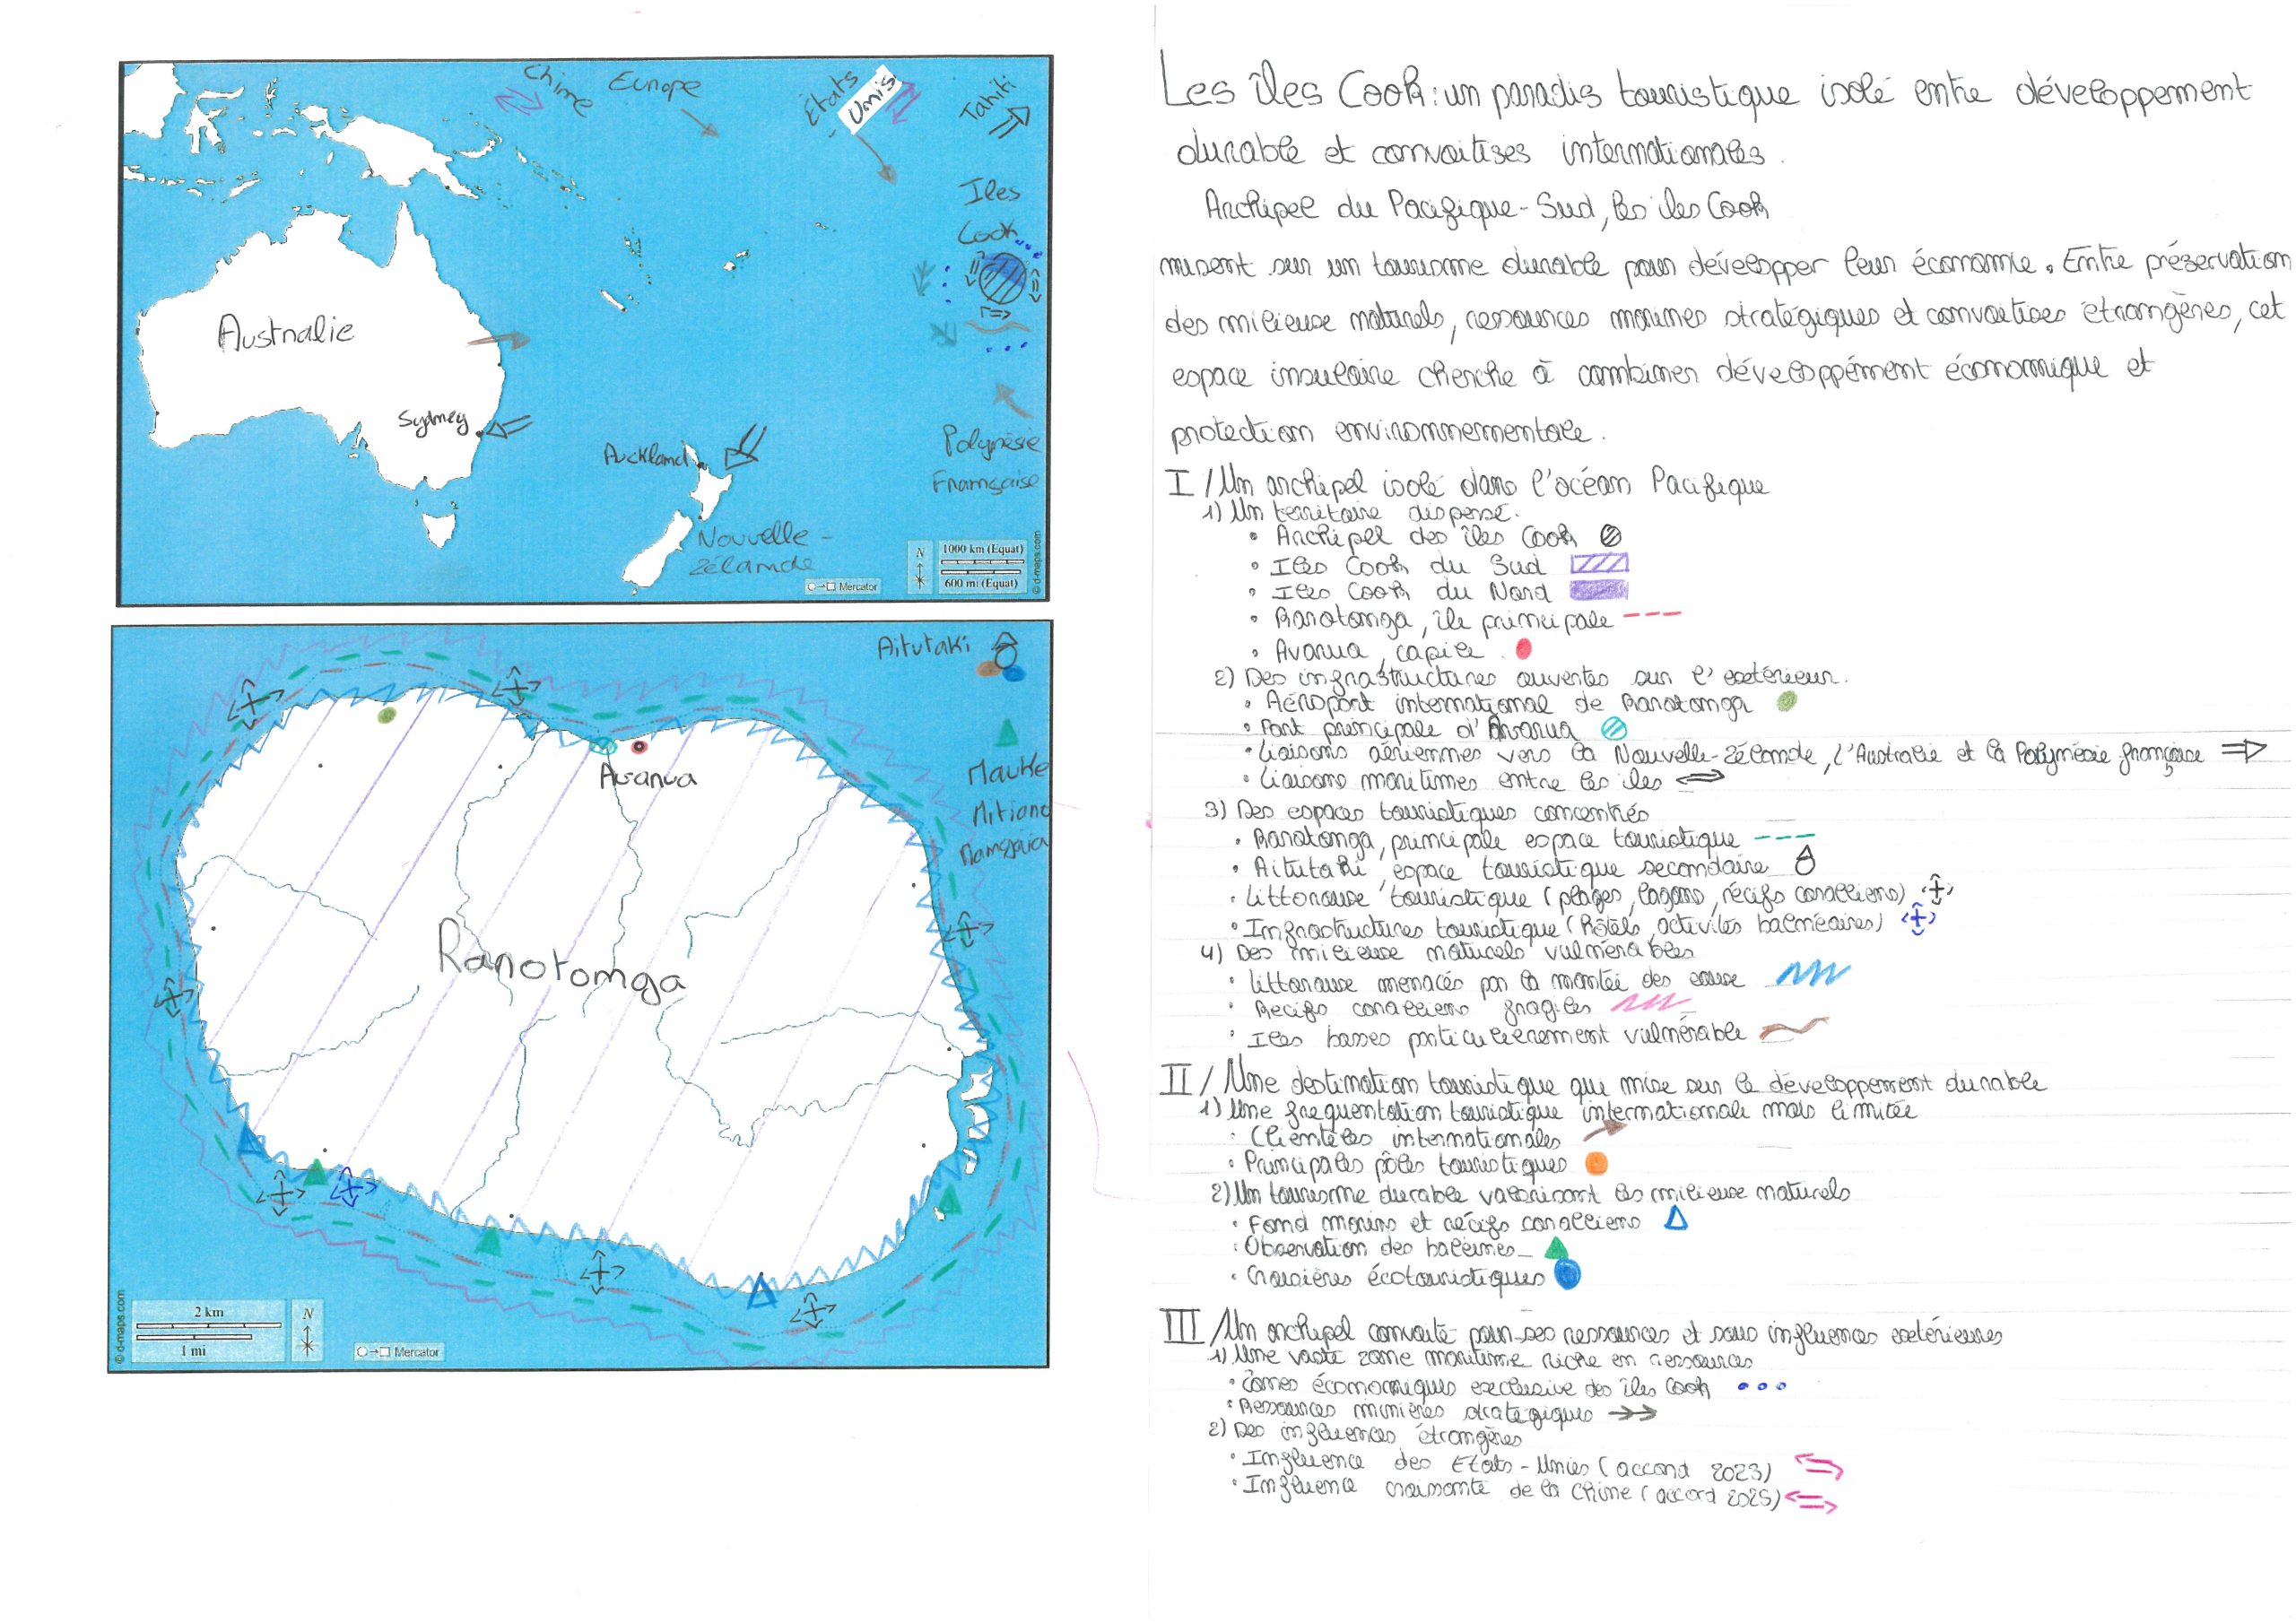 Chine
Europe
États
- Unis
Tahiti
Iles
Cook
Australie
Sydney
Auckland
Polynésie
Française
Nouvelle -
Zélande
N
1000 km (Equat)
600 mi (Equat)
Mercator
© d-maps.com
Aitutaki
Avarua
Mauke
Mitiano
Mangaia
Rarotonga
2 km
1 mi
N
Mercator
© d-maps.com
Les îles Cook : un paradis touristique isolé entre développement
durable et convoitises internationales.
Archipel du Pacifique-Sud, les îles Cook
misent sur un tourisme durable pour développer leur économie. Entre préservation
des milieux naturels, ressources marines stratégiques et convoitises étrangères, cet
espace insulaire cherche à combiner développement économique et
protection environnementale.
I / Un archipel isolé dans l'océan Pacifique
1) Un territoire dispersé.
• Archipel des îles Cook
• Iles Cook du Sud
• Iles Cook du Nord
• Rarotonga, île principale
• Avarua, capile
2) Des infrastructures ouvertes sur l'extérieur.
• Aéroport international de Rarotonga
• Port principale d'Avarua
• Liaisons aériennes vers la Nouvelle-Zélande, l'Australie et la Polynésie française
• Liaisons maritimes entre les îles
3) Des espaces touristiques concentrés
• Rarotonga, principale espace touristique
• Aitutaki, espace touristique secondaire
• Littoraux touristique (plages, lagons, récifs coralliens)
• Infrastructures touristique (hôtels, activités balnéaires)
4) Des milieux naturels vulnérables
• Littoraux menacés par la montée des eaux
• Récifs coralliens fragiles
• Iles basses particulièrement vulnérable
II / Une destination touristique qui mise sur le développement durable
1) Une frequentation touristique internationale mais limitée
• Clientèles internationales
• Principales pôles touristiques
2) Un tourisme durable valorisant les milieux naturels
• Fond marins et récifs coralliens
• Observation des baleines
• Croisières écotouristiques
III / Un archipel convoité pour ses ressources et sous influences extérieures
1) Une vaste zone maritime riche en ressources
• Zones économiques exclusive des îles Cook
• Ressources minières stratégiques
2) Des influences étrangères
• Influence des Etats-Unies (accord 2023)
• Influence croissante de la Chine (accord 2025)